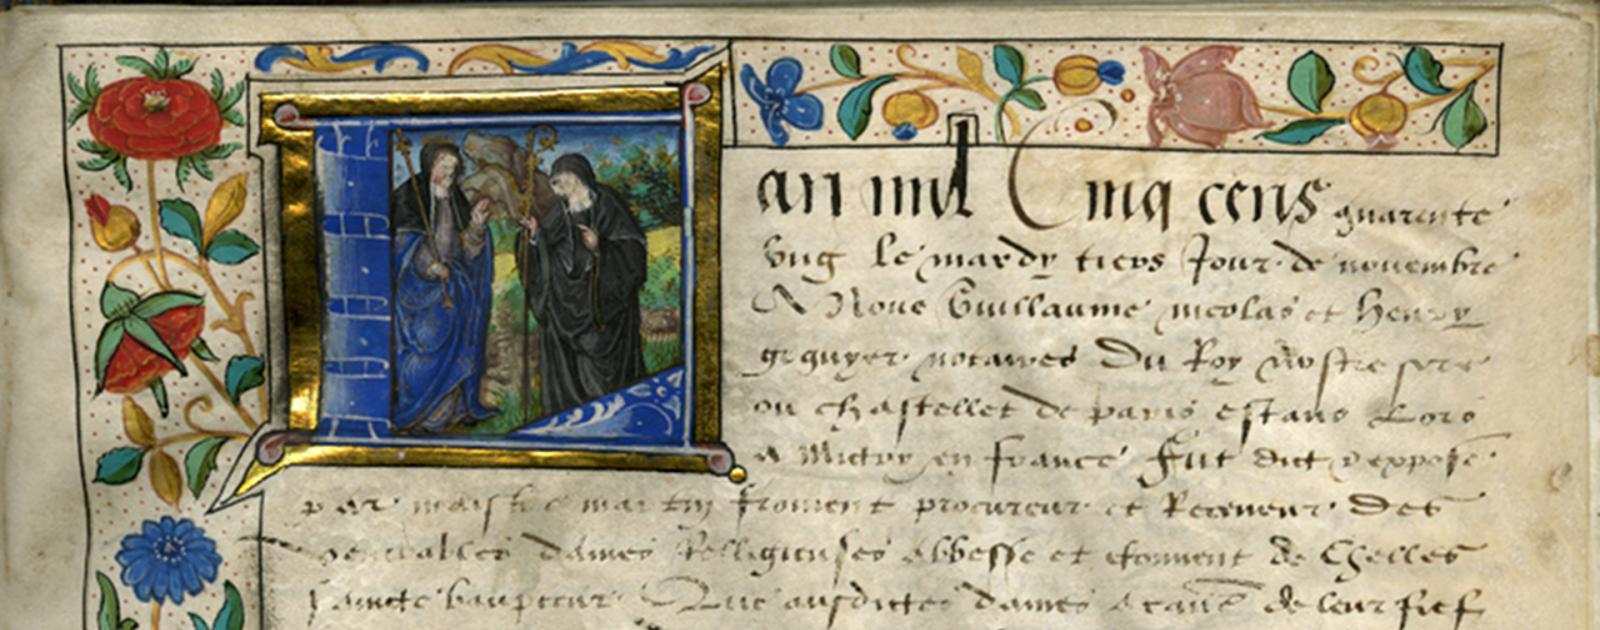 L an mil Cinq cens quarente
ung le mardy tiers Jour de novembre
A Nous Guillaume nicolas et Henry
gr guyer notaires Du Roy nostre sire
ou chastellet de paris estans Lors
a Mictry en france Fut dict & expose
par maistre martin froment procureur et Receveur des
venerables dames Relligieuses abbesse et couvent de Chelles
saincte baupteur Que ausdictes dames a cause de leur fief